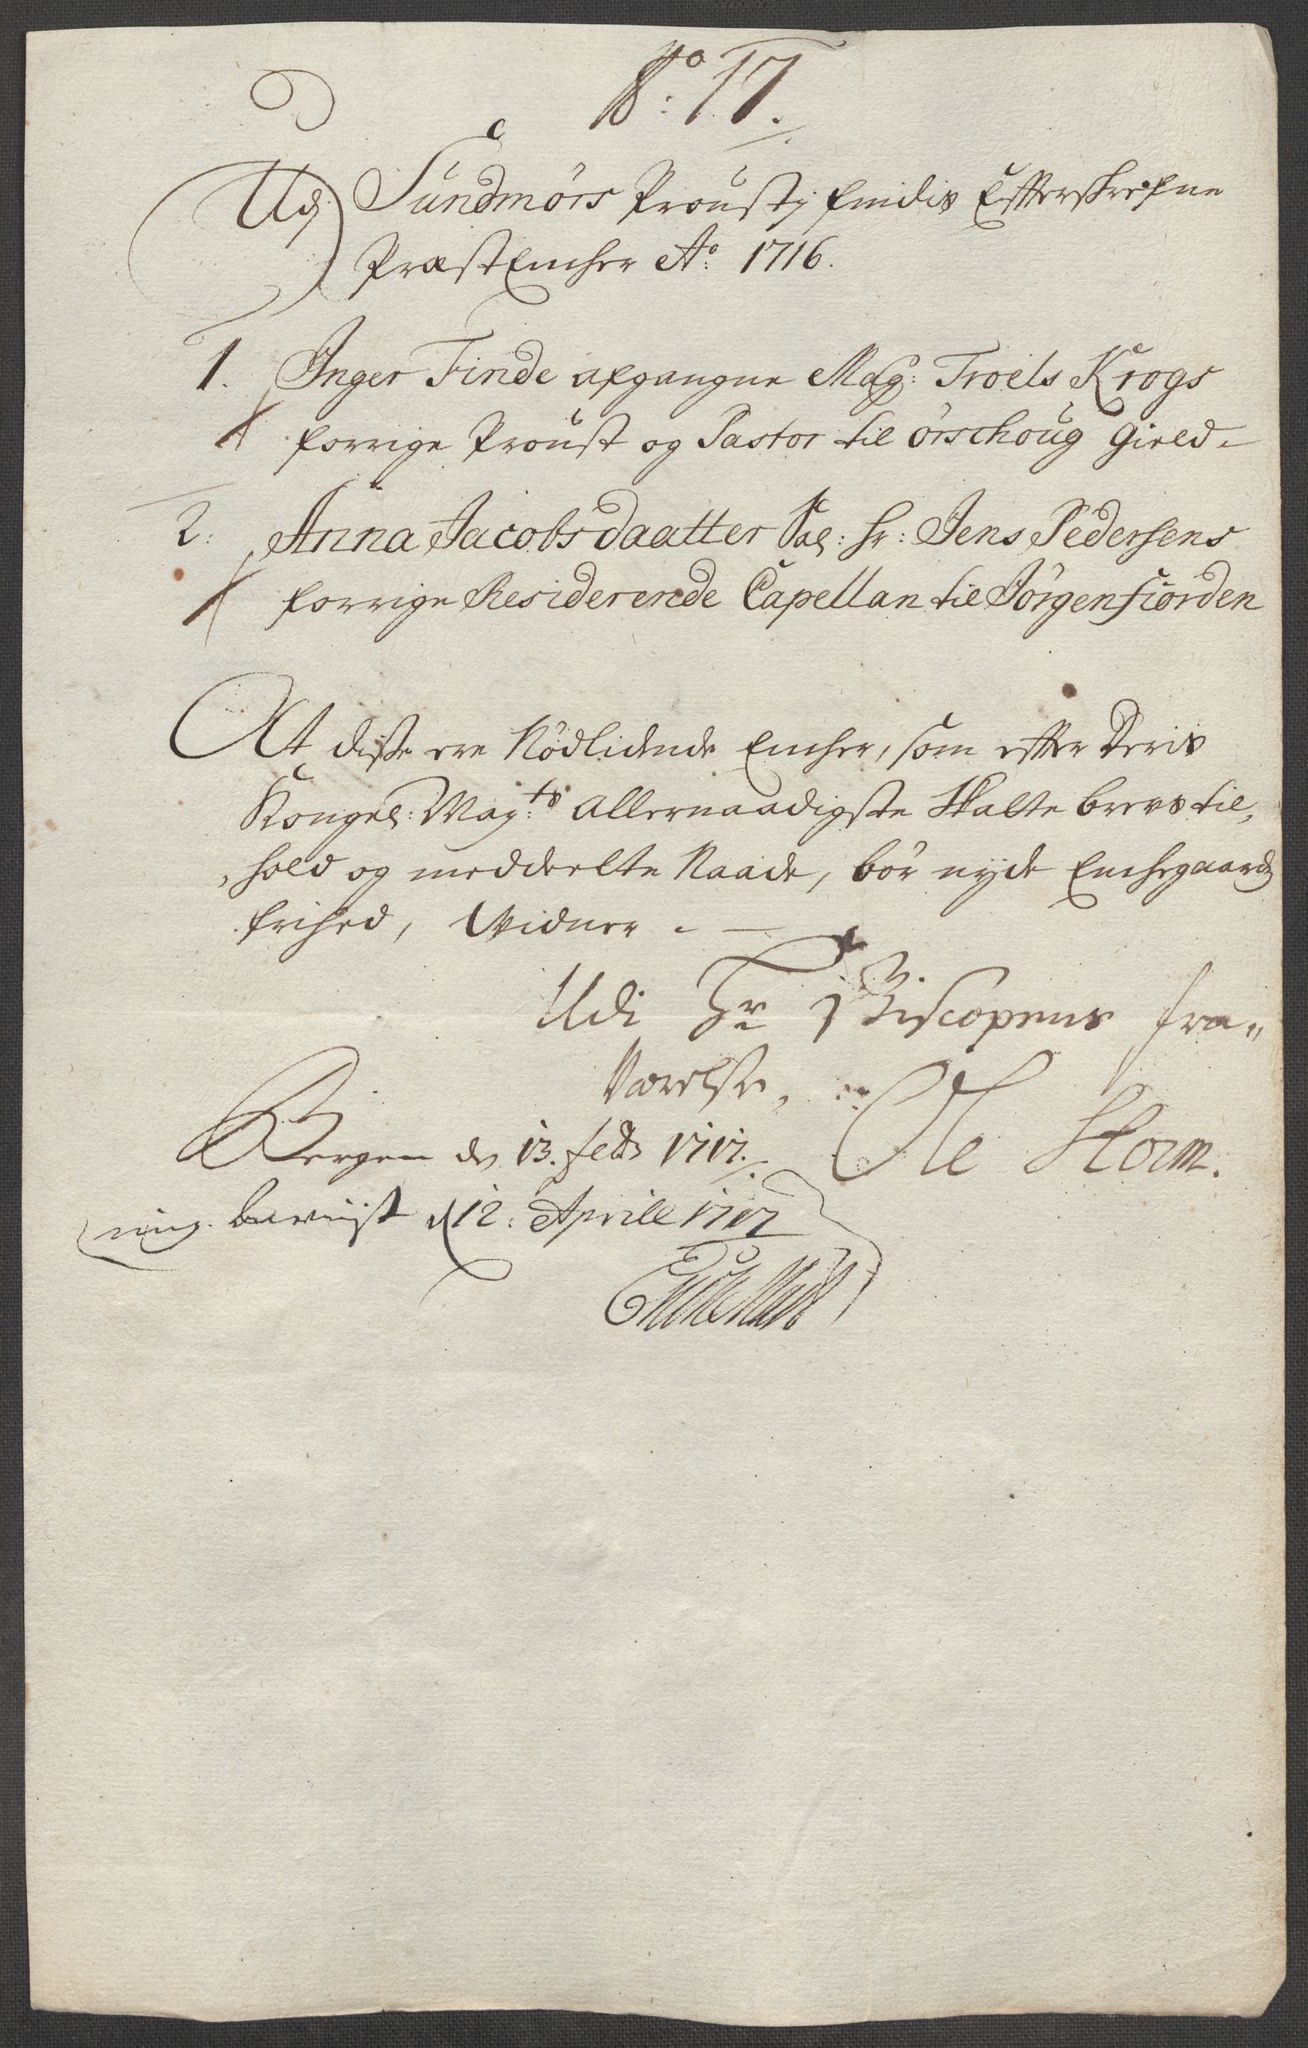 No: 17.
Udj Sundmörs Proustj findis Efterskrefne
PræstEncher Ao: 1716.
1. Inger Finde afgangne Mag: Troels Krogs
forrige Proust og Pastor til örschoug Gield-
2: Anna Jacobsdaatter Sal: Hr: Jens Pedersens
forrige Residerende Capellan til Jörgenfiorden
At disse ere Nödlidende Encher, som efter Deris
Kongel: May:ts Allernaadigste Skatte brevs til,
,hold og meddeelte Naade, bör nyde Enchegaards
frihed, Widner -
Udi Hr Biscopens fra-
Værelse,
Ole Storm.
Bergen dn 13. febr 1717.
bewiist d 12: Aprill 1717